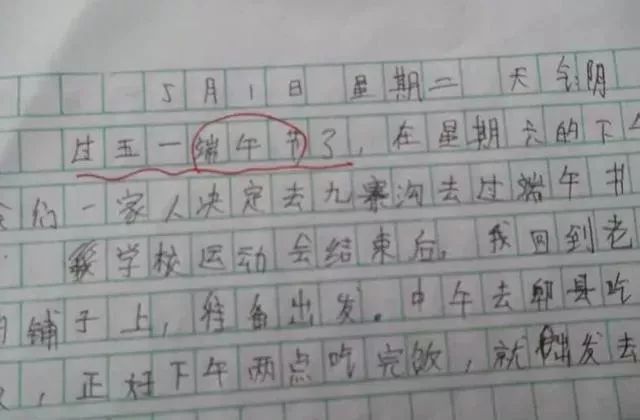 5月1日 星期二 天气阴
过五一端午节了，在星期六的下午
我们一家人决定去九寨沟去过端午书
学校运动会结束后，我回到老
铺子上，准备出发。中午去郫县吃
，正好下午两点吃完饭，就出发去